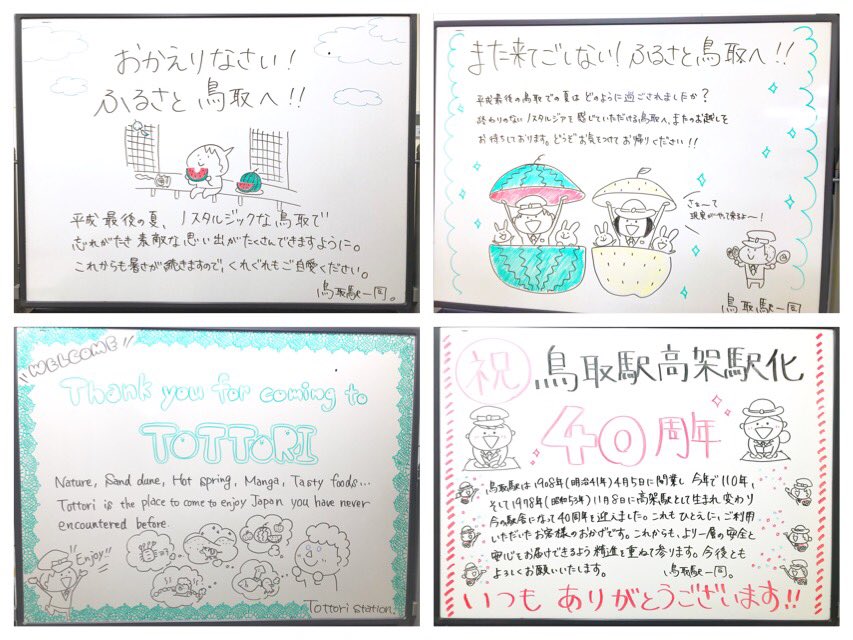 おかえりなさい！
ふるさと 鳥取へ！！
平成最後の夏、ノスタルジックな鳥取で
忘れがたき 素敵な 思い出がたくさんできますように。
これからも暑さが続きますので、くれぐれもご自愛ください。
鳥取駅一同。
また来てごしない！ふるさと鳥取へ！！
平成最後の鳥取での夏は どのように過ごされましたか？
終わりのないノスタルジアを感じていただける鳥取へ、またのお越しを
お待ちしております。どうぞお気をつけて お帰りください！！
さぁ～て
現実がやって来るよ～！
鳥取駅一同
WELCOME!!
Thank you for coming to
TOTTORI
Nature, Sand dune, Hot spring, Manga, Tasty foods...
Tottori is the place to come to enjoy Japan you have never
encountered before.
Enjoy!!
Tottori station.
祝 鳥取駅高架駅化
40周年
鳥取駅は1908年(明治41年)4月5日に開業し 今年で110年、
そして1978年(昭和53年)11月8日に高架駅として生まれ変わり
今の駅舎になって40周年を迎えました。これもひとえに、ご利用
いただいたお客様のおかげです。これからも、より一層の安全と
安心をお届けできるよう精進を重ねて参ります。今後とも
よろしくお願いいたします。 鳥取駅一同。
いつも ありがとうございます!!